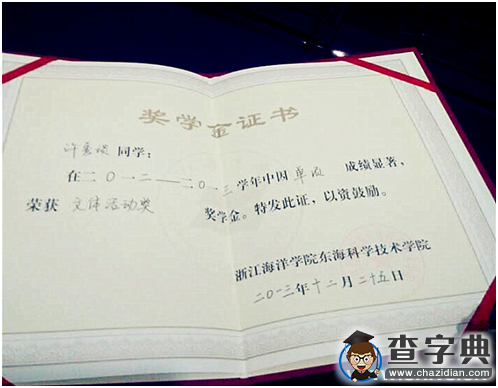 奖学金证书
许 同学：
在二〇一二——二〇一三学年中因 单项 成绩显著，
荣获 文体活动奖 奖学金。特发此证，以资鼓励。
浙江海洋学院东海科学技术学院
二〇一三年十二月二十五日
查字典
www.chazidian.com